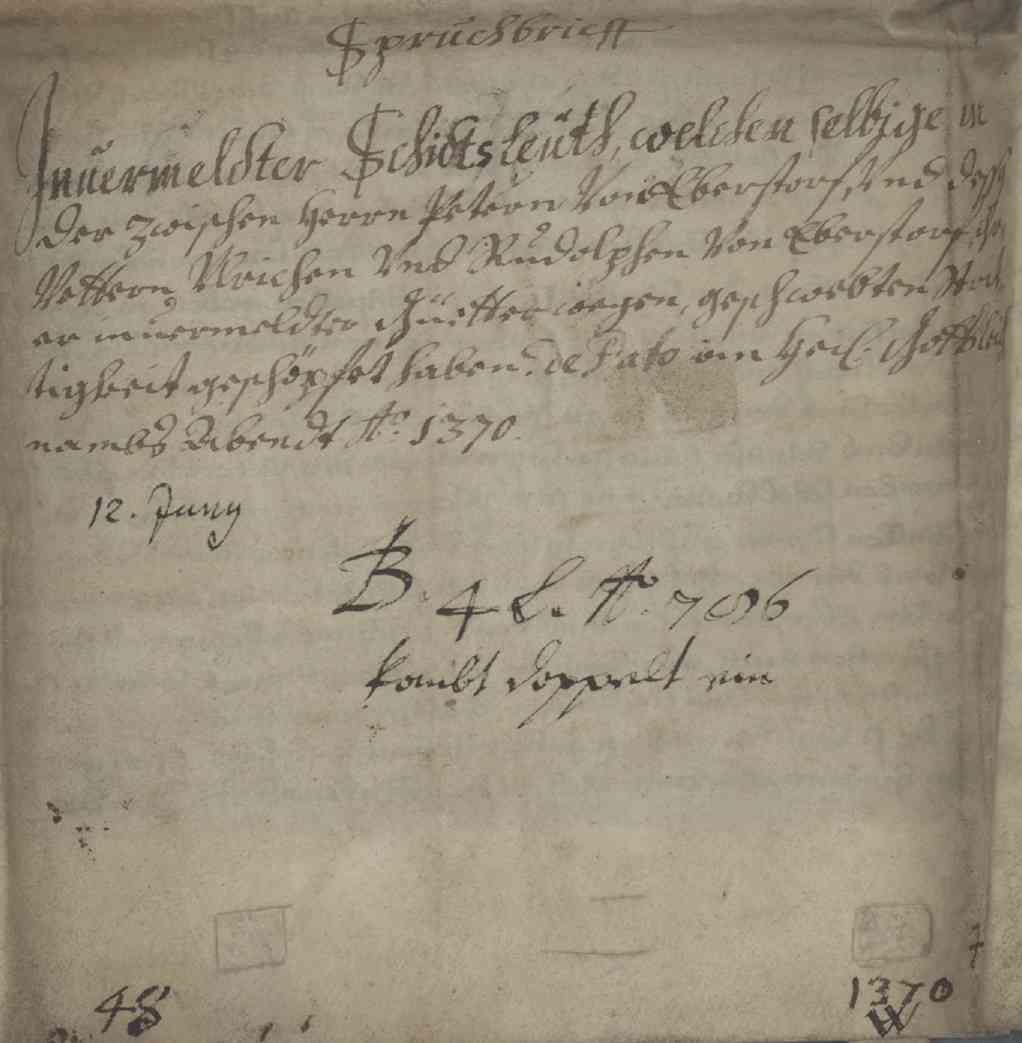 Spruchbrieff
Inuermeldter Schidtsleuth, welchen selbige in
der zwischen Herrn Petern Von Eberstorf, Vnd deßen
Vettern Ulrichen Vnd Rudolphen Von Eberstorf,
er inuermeldter Güetter wegen, geschwebten Strit-
tigkeit geschöpfet haben. de dato am Heil. Gottsleich-
nambs Abendt Ao. 1370.
12. Juny
B. 4 L. No. 786
kombt doppelt ein
48
1370
W